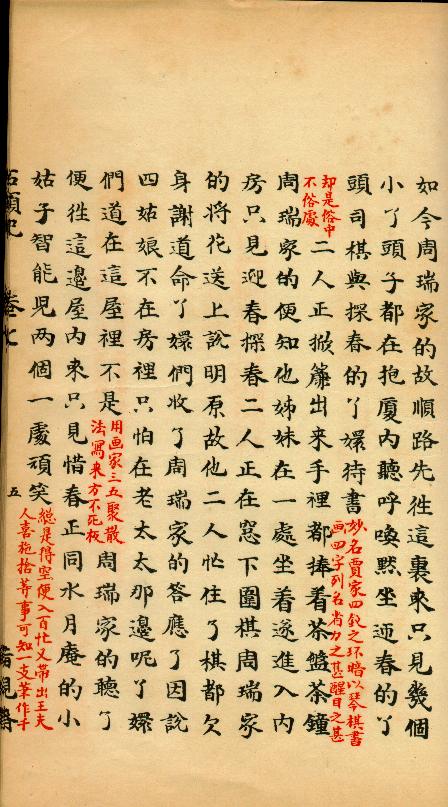 如今周瑞家的故順路先徃這裏來只見幾個
小了頭子都在抱厦內聽呼喚黙坐迎春的丫
頭司棋與探春的丫嬛待書
妙名賈家四釵之环暗以琴棋書
画四字列名省力之甚醒目之甚
却是俗中
不俗處
二人正掀簾出来手裡都捧着茶盤茶鐘
周瑞家的便知他姊妹在一處坐着遂進入内
房只見迎春探春二人正在窓下圍棋周瑞家
的将花送上說明原故他二人忙住了棋都欠
身謝道命丫嬛們收了周瑞家的答應了因說
四姑娘不在房裡只怕在老太太那邊呢丫嬛
們道在這屋裡不是
用画家三五聚散
法寫来方不死板
周瑞家的聽了
便徃這邉屋内来只見惜春正同水月庵的小
姑子智能児两個一處頑笑
緫是得空便入百忙又帶出王夫
人喜施捨䓁事可知一支筆作千
石頭記 卷七 五